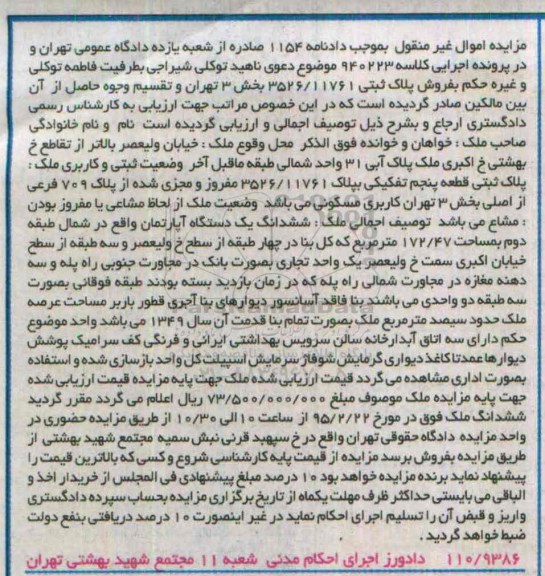 مزایده اموال غیر منقول بموجب دادنامه ۱۱۵۴ صادره از شعبه یازده دادگاه عمومی تهران و
در پرونده اجرایی کلاسه ۹۴۰۲۲۳ موضوع دعوی ناهید توکلی شیراجی بطرفیت فاطمه توکلی
و غیره حکم بفروش پلاک ثبتی ۳۵۲۶/۱۱۷۶۱ بخش ۳ تهران و تقسیم وجوه حاصل از آن
بین مالکین صادر گردیده است که در این خصوص مراتب جهت ارزیابی به کارشناس رسمی
دادگستری ارجاع و بشرح ذیل توصیف اجمالی و ارزیابی گردیده است نام و نام خانوادگی
صاحب ملک : خواهان و خوانده فوق الذکر محل وقوع ملک : خیابان ولیعصر بالاتر از تقاطع خ
بهشتی خ اکبری ملک پلاک آبی ۳۱ واحد شمالی طبقه ماقبل آخر وضعیت ثبتی و کاربری ملک :
پلاک ثبتی قطعه پنجم تفکیکی بپلاک ۳۵۲۶/۱۱۷۶۱ مفروز و مجزی شده از پلاک ۷۰۹ فرعی
از اصلی بخش ۳ تهران کاربری مسکونی می باشد وضعیت ملک از لحاظ مشاعی یا مفروز بودن
: مشاع می باشد توصیف اجمالی ملک : ششدانگ یک دستگاه آپارتمان واقع در شمال طبقه
دوم بمساحت ۱۷۲/۴۷ مترمربع که کل بنا در چهار طبقه از سطح خ ولیعصر و سه طبقه از سطح
خیابان اکبری سمت خ ولیعصر یک واحد تجاری بصورت بانک در مجاورت جنوبی راه پله و سه
دهنه مغازه در مجاورت شمالی راه پله که در زمان بازدید بسته بودند طبقه فوقانی بصورت
سه طبقه دو واحدی می باشند بنا فاقد آسانسور دیوارهای بنا آجری قطور باربر مساحت عرصه
ملک حدود سیصد متر مربع ملک بصورت تمام بنا قدمت آن سال ۱۳۴۹ می باشد واحد موضوع
حکم دارای سه اتاق آبدارخانه سالن سرویس بهداشتی ایرانی و فرنگی کف سرامیک پوشش
دیوارها عمدتا کاغذ دیواری گرمایش شوفاژ سرمایش اسپیلت کل واحد بازسازی شده و استفاده
بصورت اداری مشاهده می گردد قیمت ارزیابی شده ملک جهت پایه مزایده قیمت ارزیابی شده
جهت پایه مزایده ملک موصوف مبلغ ۷۳/۵۰۰/۰۰۰/۰۰۰ ریال اعلام می گردد مقرر گردید
ششدانگ ملک فوق در مورخ ۹۵/۲/۲۲ از ساعت ۱۰ الی ۱۰/۳۰ از طریق مزایده حضوری در
واحد مزایده دادگاه حقوقی تهران واقع در خ سپهبد قرنی نبش سمیه مجتمع شهید بهشتی از
طریق مزایده بفروش برسد مزایده از قیمت پایه کارشناسی شروع و کسی که بالاترین قیمت را
پیشنهاد نماید برنده مزایده خواهد بود ۱۰ درصد مبلغ پیشنهادی فی المجلس از خریدار اخذ و
الباقی می بایستی حداکثر ظرف مهلت یکماه از تاریخ برگزاری مزایده بحساب سپرده دادگستری
واریز و قبض آن را تسلیم اجرای احکام نماید در غیر اینصورت ۱۰ درصد دریافتی بنفع دولت
ضبط خواهد گردید .
۱۱۰/۹۳۸۶ دادورز اجرای احکام مدنی شعبه ۱۱ مجتمع شهید بهشتی تهران